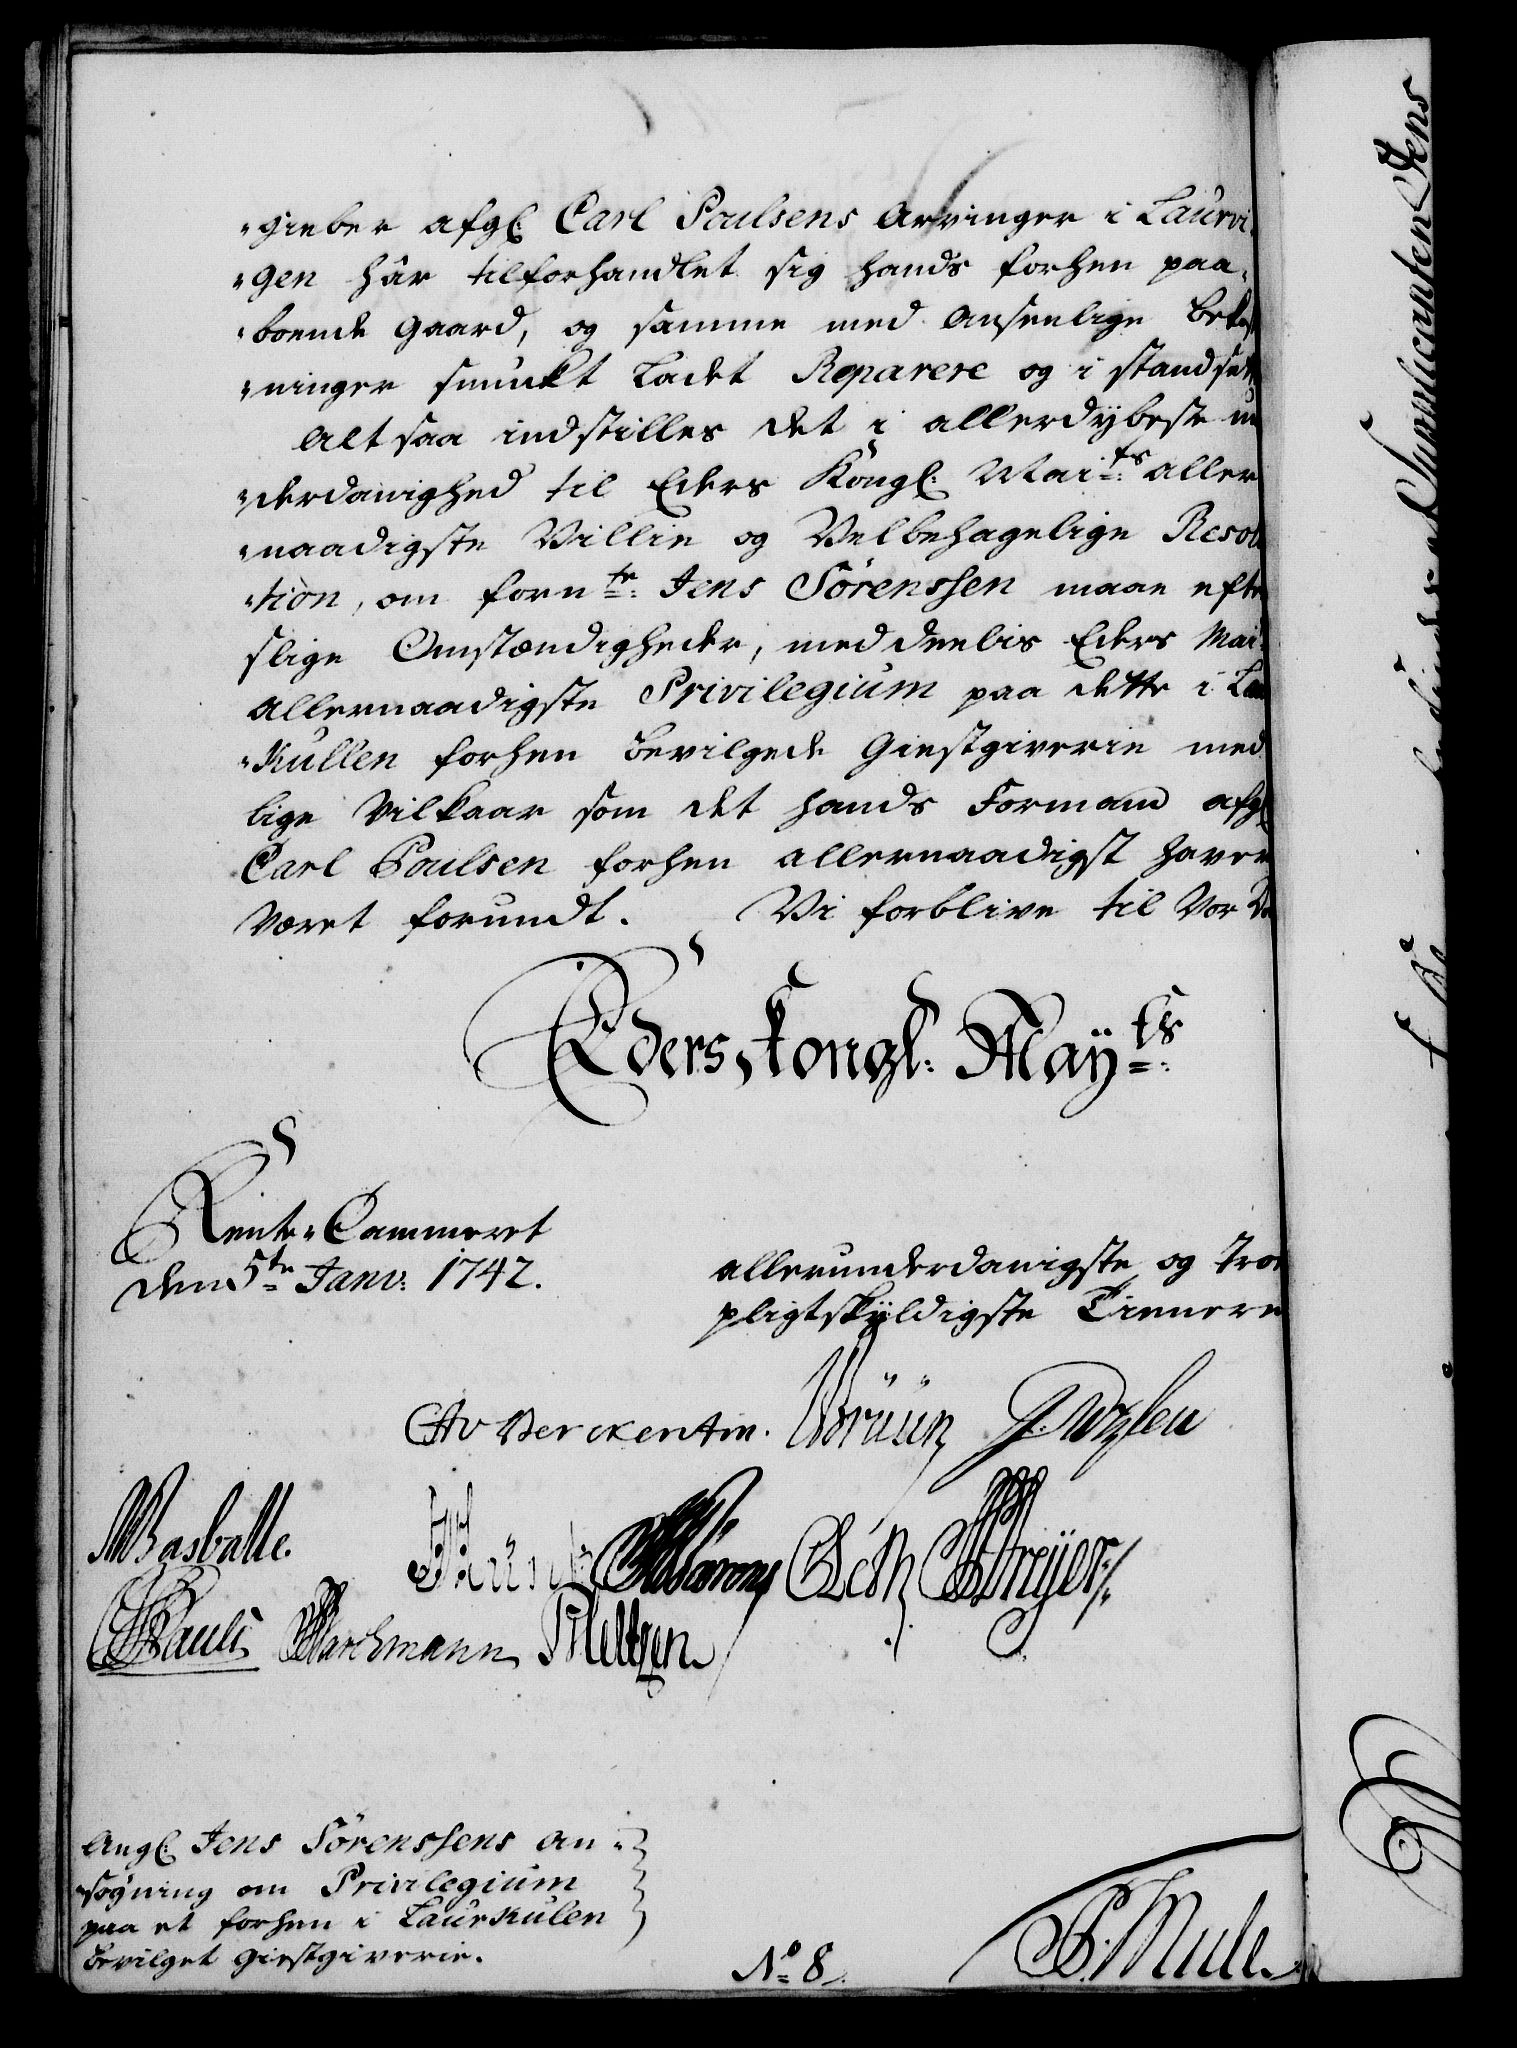 "gieber afgl: Carl Poulsens Arvinger i Laurvi-
"gen hâr tilforhandlet sig hands forhen paa-
"boende Gaard, og samme med Anseelige Bekost
"ninger smuckt Ladet Reparere og i stand sætte
Alt saa indstilles det i allerdÿbeste un
"derdanighed til Eders Kongl: Mai:ts aller
"naadigste Villie og Velbehagelige Resolu
"tion, om forn:te Jens Sörenssen maae efter
slige Omstændigheder, meddeelis Eders Mai:
allernaadigste Privilegium paa dette i Laur
"Kullen forhen bevilgede Giestgiverie med
lige Vilkaar som det hands Formand afgl:
Carl Poulsen forhen allernaadigst haver
været forundt. Vi forblive til Vor Dö
Eders Kongl: Maÿ:ts
Rente-Cammeret
den 5te Janv: 1742.
allerunderdanigste og Troe
pligtskÿldigste Tienere
CAv Berckentin.
Basballe.
Pauli
P. Mule.
Angl: Jens Sörenssens An-
"sögning om Privilegium
paa et forhen i Laurkulen
bevilget giestgiverie.
No 8.
Jens